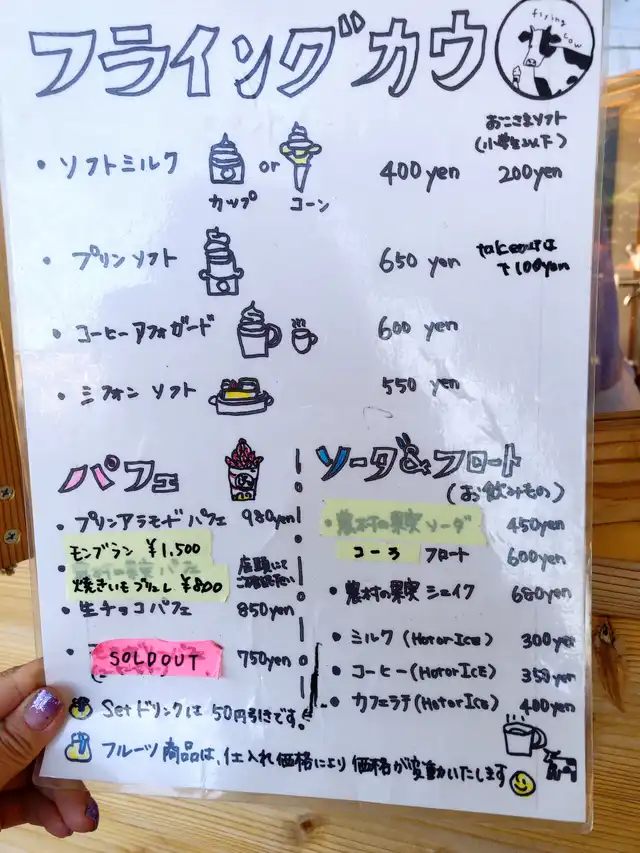 フライングカウ
flying cow
おこさまソフト
(小学生以下)
・ソフトミルク or 400yen 200yen
カップ コーン
・プリンソフト 650yen takeoutは
で100yen
・コーヒーアフォガード 600yen
・シフォンソフト 550yen
パフェ
・プリンアラモードパフェ 980yen
モンブラン ¥1,500
店頭にて
ご確認下さい
焼きいもブリュレ ¥800
・生チョコパフェ 850yen
・SOLDOUT 750yen
Setドリンクは50円引きです。
ソーダ&フロート
(お飲みもの)
・農村の果実ソーダ 450yen
コーラ フロート 600yen
・農村の果実シェイク 680yen
・ミルク(HotorIce) 300yen
・コーヒー(HotorIcE) 350yen
・カフェラテ(HotorIce) 400yen
フルーツ商品は、仕入れ価格により価格が変動いたします